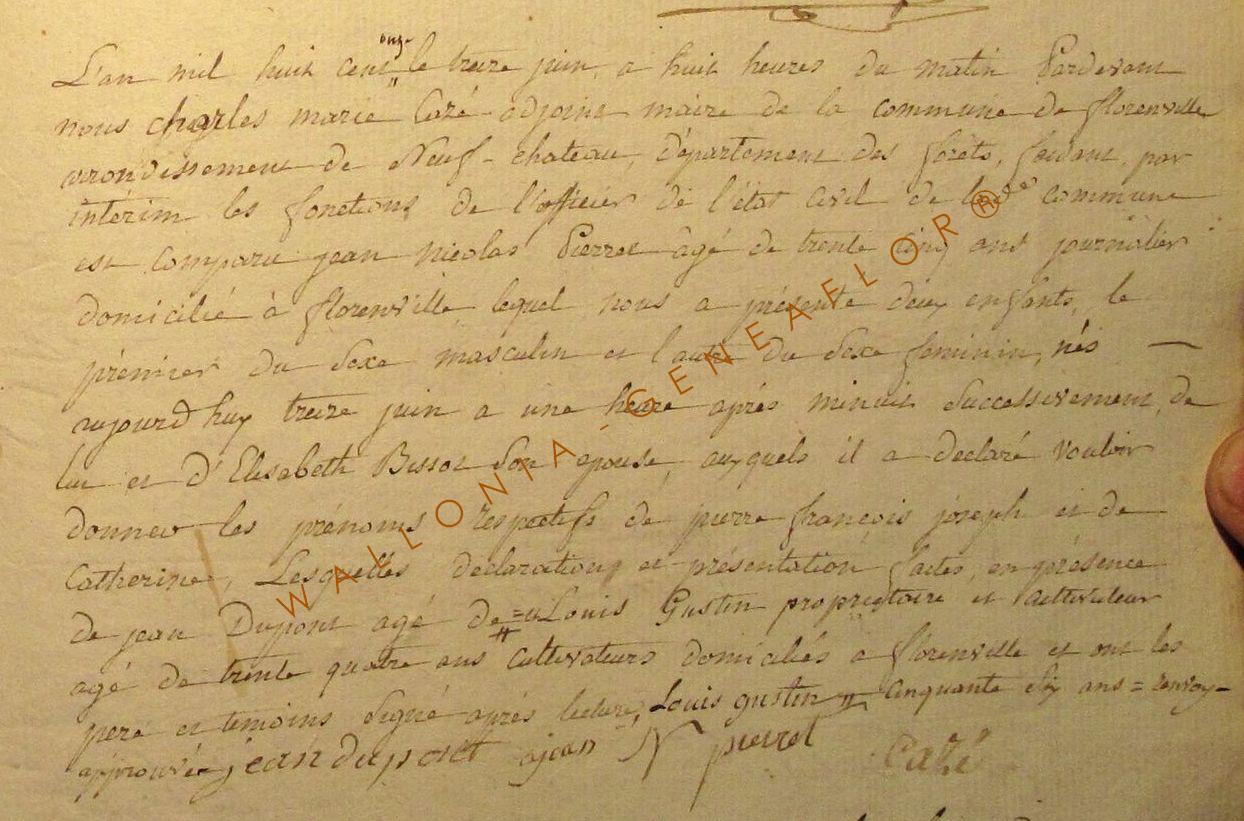 L'an mil huit cent onze le treize juin, a huit heures du matin Pardevant
nous charles marie Cazé adjoint maire de la commune de florenville
arrondissement de Neuf-chateau, département des forêts, faisant, par
intérim les fonctions de l'officier de l'état civil de commune
est comparu jean nicolas Pierret agé de trente cinq ans journalier
domicilié à florenville lequel nous a présenté deux enfants, le
prémier du Sexe masculin et l'autre du Sexe feminin, nés —
aujourd huy treize juin a une heure aprés minuit Successivement, de
lui et d'Elisabeth Bissot Son epouse, auxquels il a declaré vouloir
donner les prénoms respectifs de pierre françois joseph et de
Catherine, Lesquelles declarations et présentation faites, en présence
de jean Dupont agé de = Louis Gustin proprietaire et cultivateur
agé de trente quatre ans cultivateurs domiciliés a florenville et ont les
pere et temoins Signé aprés lecture, Louis gustin cinquante Six ans = renvoy-
approuvé jean dupont jean N pierret Cazé
WALLONIA-GENEAFLOR®